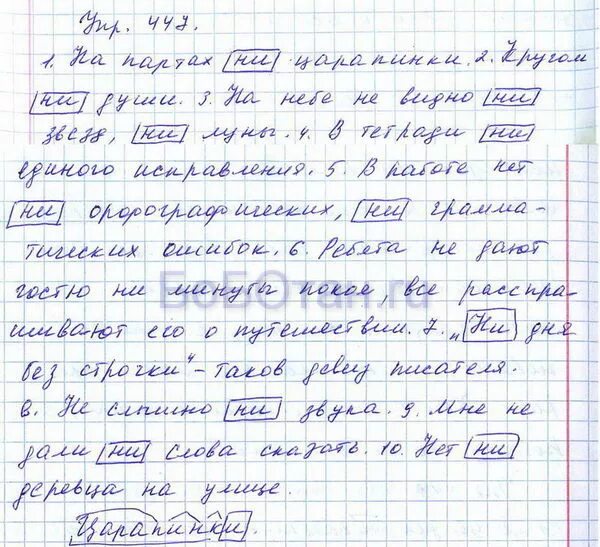 Упр. 447.
1. На партах ни царапинки. 2. Кругом
ни души. 3. На небе не видно ни
звезд, ни луны. 4. В тетради ни
единого исправления. 5. В работе нет
ни орфографических, ни грамма-
тических ошибок. 6. Ребята не дают
гостю ни минуты покоя, все расспра-
шивают его о путешествии. 7. „Ни дня
без строчки" – таков девиз писателя.
8. Не слышно ни звука. 9. Мне не
дали ни слова сказать. 10. Нет ни
деревца на улице.
Царапинки.